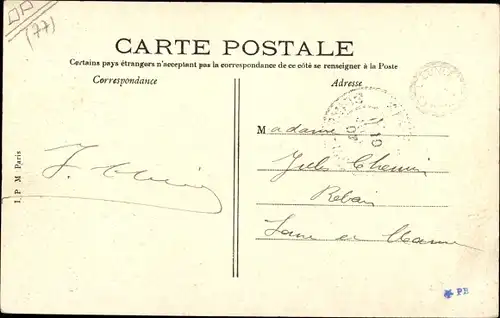 (77)
CARTE POSTALE
Certains pays étrangers n'acceptant pas la correspondance de ce côté se renseigner à la Poste
Correspondance
Adresse
Madame
Jules Chemin
Rebais
Seine et Marne
I P M Paris
PR